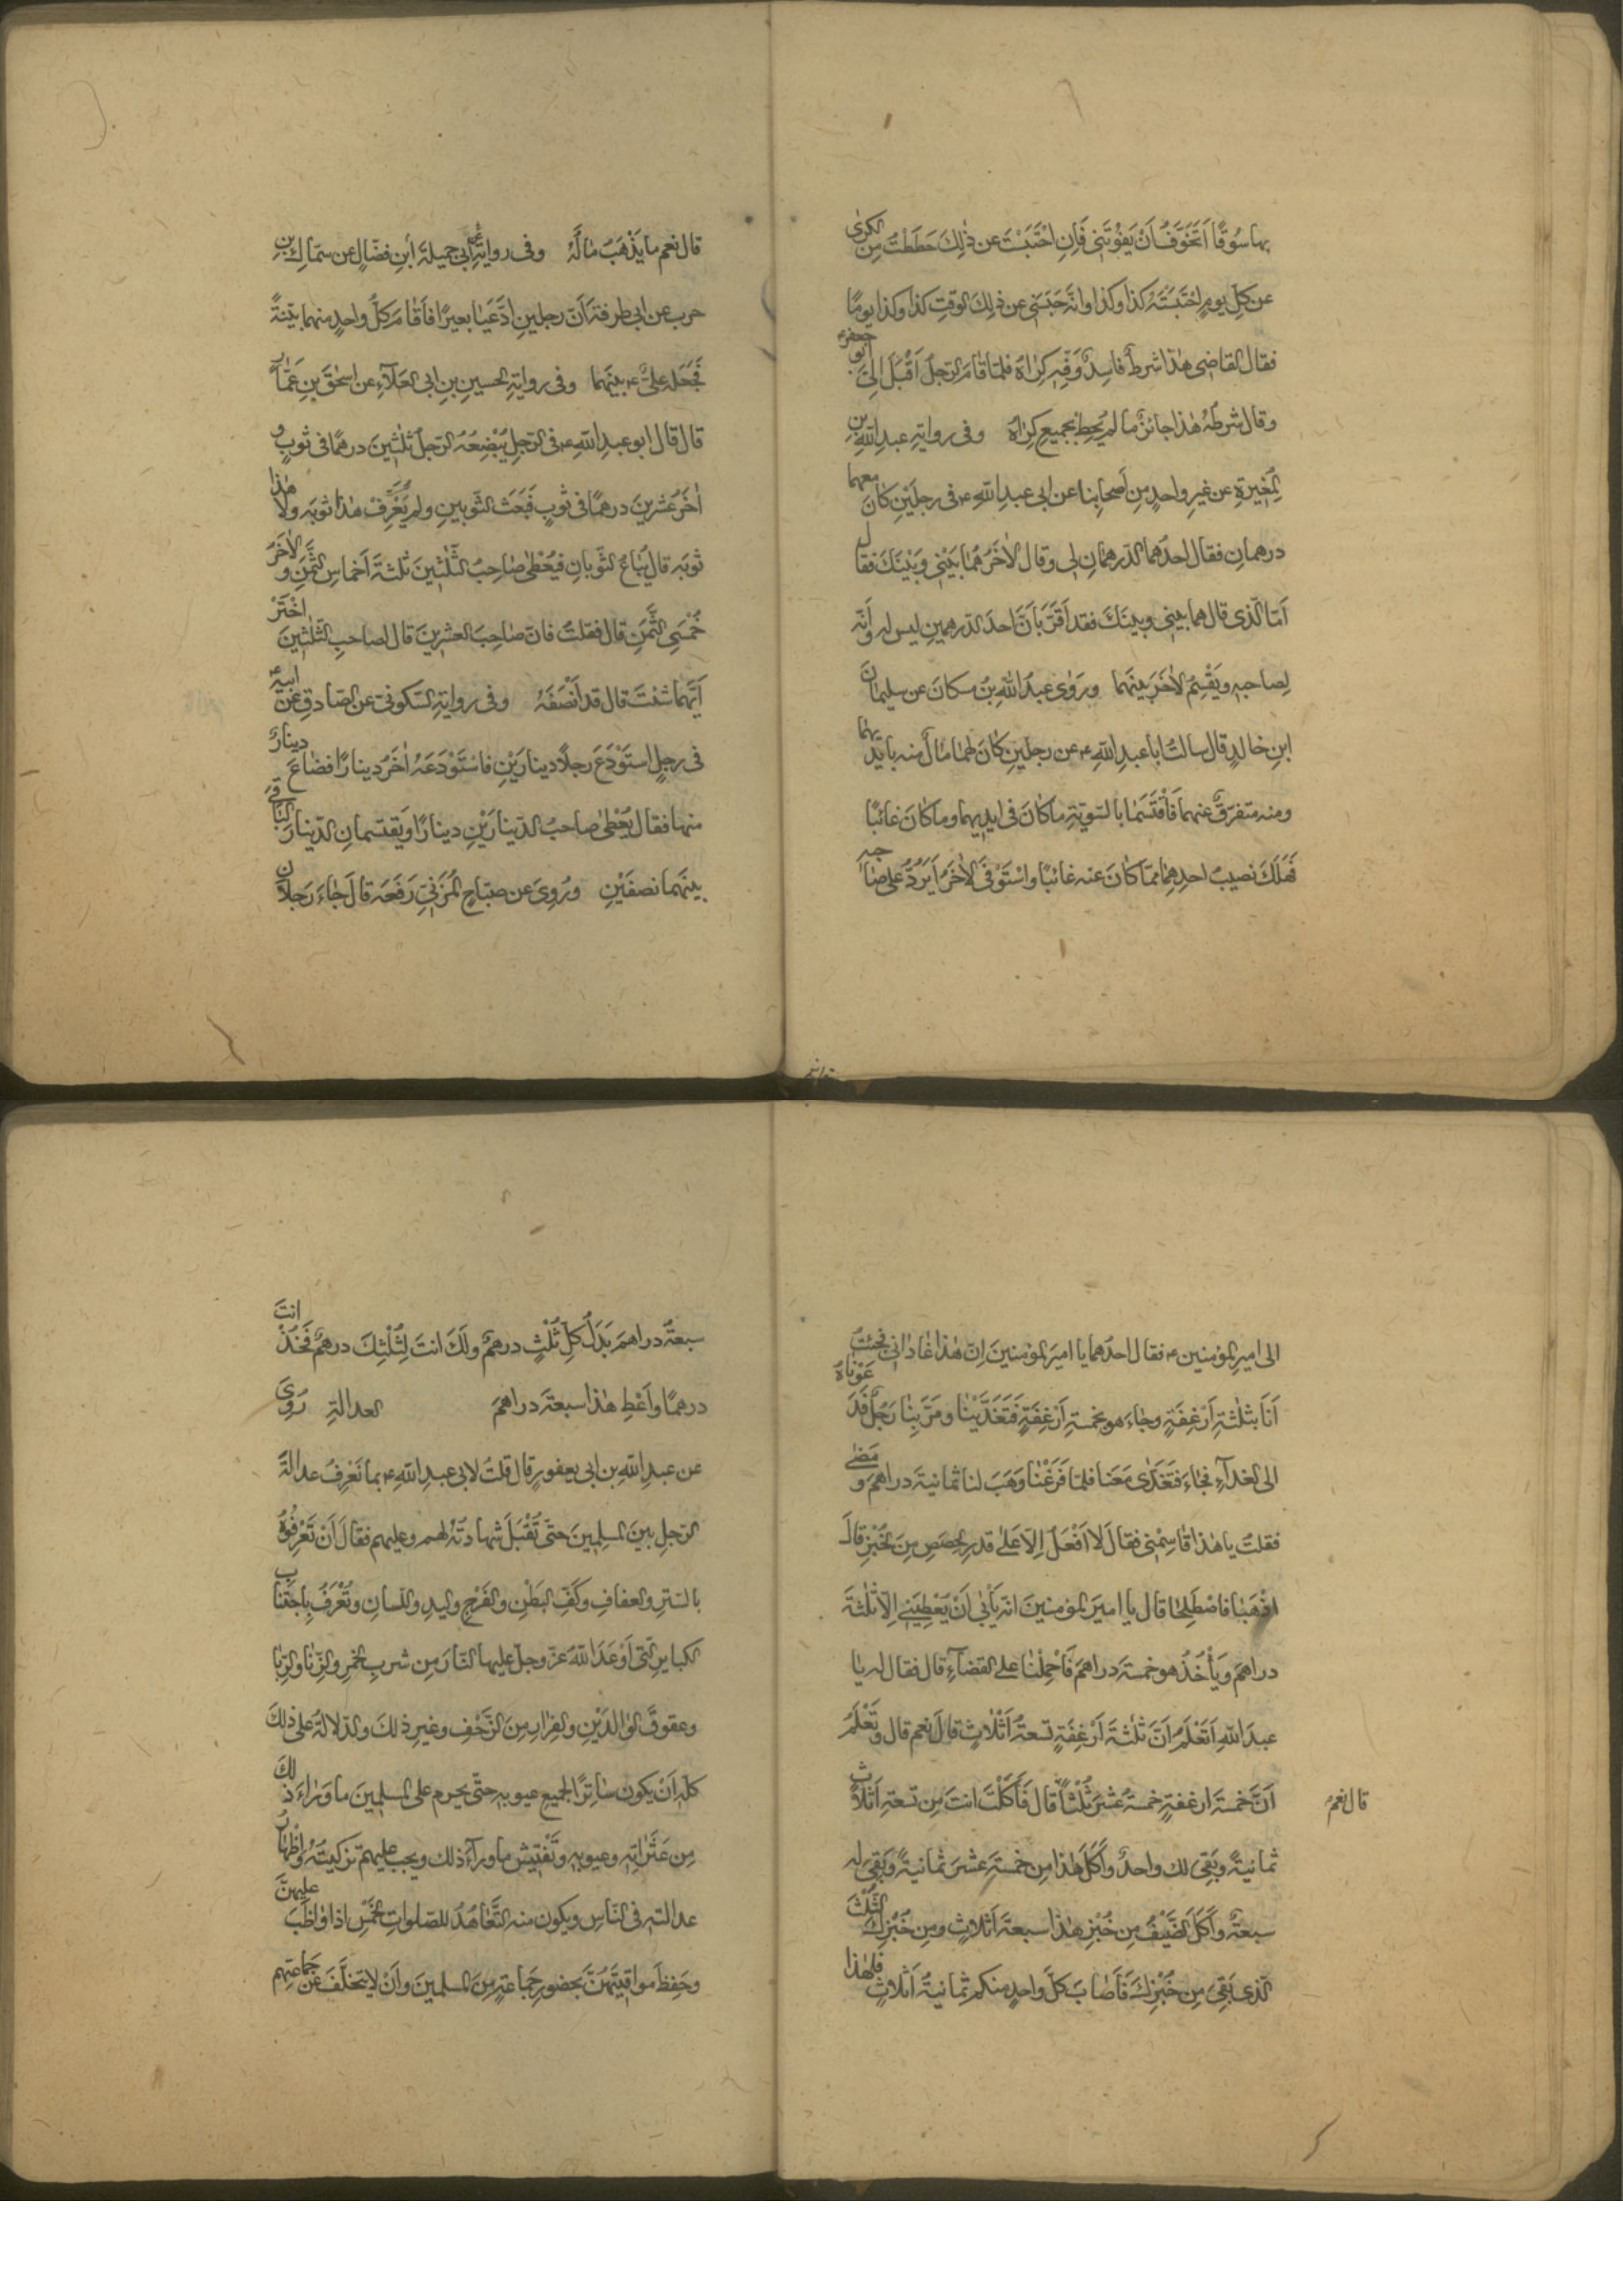 بها سُوقًا اَتَخَوَّفُ اَنْ يَفُوْتَنِي فَاِنِ احْتَبَسْتُ عن ذٰلِكَ حَطَطْتُ مِن الكِرىٰ
عن كلِّ يومٍ احْتَبَسْتُه كذا وكذا وانّه حَبَسَنِي عن ذٰلِكَ الوقتِ كذا وكذا يومًا
فقال القاضِي هٰذا شرطٌ فاسِدٌ وَفِّهِ كِرٰاهُ فلمّا قٰامَ الرّجلُ اَقْبَلَ اِلَيَّ ابو جعفرٍ ع
وقال شرطُهُ هٰذا جائزٌ ما لم يَحُطَّ بجميعِ كِرٰاهُ وفى روايةِ عبدِ اللهِ بنِ
المُغِيرةِ عن غيرِ واحدٍ مِن اَصحابِنا عن ابى عبدِ اللهِ ع فى رجلَيْنِ كان معهما
درهمانِ فقال احدُهما الدّرهمانِ لى وقال الاٰخَرُ هُمٰا بَيْنِي وَبَيْنَكَ فقال
اَمّا الّذى قال هما بينِي وبينَكَ فقد اَقَرَّ بِاَنَّ احدَ الدّرهمينِ ليس له وَاَنّه
لِصاحبِه ويُقْسَمُ الاٰخَرُ بينَهما ورَوٰى عبدُ اللهِ بنُ مسكانَ عن سليمانَ
ابنِ خالدٍ قال سالتُ اباعبدِ اللهِ ع عن رجلَينِ كانَ لهمٰا مٰالٌ منه بايديهمٰا
ومنه متفرّقٌ عنهما فَاقْتَسَمٰا بالسّويّةِ ماكانَ فى ايدِيهما وماكانَ غائبًا
فَهَلَكَ نصيبُ احدِهِمٰا ممّا كانَ عنه غائبًا واسْتَوْفَى الاٰخَرُ اَيَرُدُّ على صٰاحبِه
قال نعم ما يَذْهَبُ مٰالُهُ وفى روايةِ ابنِ فضّالٍ عن ابى جميلةَ عن سمّاكِ بنِ
حربٍ عن ابى طرفةَ اَنّ رجلينِ ادَّعَيٰا بعيرًا فاَقٰامَ كلُّ واحدٍ منهما بيّنةً
فَجَعَلَه علىٌّ ع بينَهما وفى روايةِ الحسينِ بنِ ابى العَلٰآءِ عن اسحٰقَ بنِ عَمّارٍ
قال قال ابو عبدِ اللهِ ع فى الرّجلِ يُبْضِعُهُ الرّجلُ ثلٰثِينَ درهمًا فى ثوبٍ و
اٰخَرُ عشرينَ درهمًا فى ثوبٍ فَبَعَثَ الثّوبينِ ولم يَعْرِفْ هذا ثوبَه ولا هٰذا
ثوبَه قال يُبٰاعُ الثّوبانِ فيُعْطٰى صٰاحِبُ الثّلٰثينَ ثلٰثةَ اَخماسِ الثّمنِ والاٰخَرُ
خُمْسَىِ الثّمنِ قال فقلتُ فانّ صٰاحِبَ العشرينَ قال لصاحبِ الثّلٰثينَ اخْتَرْ
اَيَّهما شئتَ قال قد اَنْصَفَهُ وفى روايةِ السّكونىّ عن الصّادقِ عن ابيه ع
فى رجلٍ اسْتَوْدَعَ رجلًا دينارَيْنِ فاسْتَوْدَعَهُ اٰخَرُ دينارًا فضاعَ دينارٌ
منها فقال يُعْطٰى صاحبُ الدّينارَيْنِ دينارًا ويَقتسمانِ الدّينارَ البٰاقِىَ
بينَهما نصفَيْنِ ورُوِىَ عن صبّاحٍ المُزَنِىِّ رَفَعَه قال جٰاءَ رَجلانِ
الى اميرِ المؤمنين ع فقال احدُهما يا اميرَ المؤمنينَ اِنّ هٰذا غٰادٰانِى فجئتُ
اَنَا بثلٰثةِ اَرْغِفَةٍ وجٰاءَ هو بخمسةِ اَرْغِفَةٍ فَتَغَدَّيْنٰا ومَرَّ بِنٰا رَجُلٌ فَدَعَوْنٰاهُ
الى الغدآءِ فجٰاءَ فَتَغَدّٰى مَعَنا فلمّا فَرَغْنٰا وَهَبَ لنا ثمانيةَ دراهمَ و مَضٰى
فقلتُ يا هٰذا قٰاسِمْنِى فقال لا اَفْعَلُ اِلّا على قدرِ الحِصَصِ مِنَ الخُبْزِ قالَ
اذْهَبٰا فاصْطَلِحٰا قال يا اميرَ المؤمنينَ انّه يَاْبٰى اَنْ يُعْطِيَنِى اِلّا ثلٰثةَ
دراهمَ وَيَأْخُذُ هو خمسةَ دراهمَ فَاحْمِلْنٰا على القضآءِ قال فقال له يا
عبدَ اللهِ اَتَعْلَمُ اَنّ ثلٰثةَ اَرْغِفَةٍ تسعةُ اَثْلاثٍ قالَ نعم قال وَتَعْلَمُ
اَنَّ خمسةَ ارغفةٍ خمسةَ عَشَرَ ثُلُثًا قال فَاَكَلْتَ انتَ مِن تسعةِ اَثلاثٍ
قال نعم
ثمانيةً وبَقِىَ لك واحدٌ واَكَلَ هٰذا مِن خمسةَ عشرَ ثمانيةً وبَقِىَ له
سبعةٌ واَكَلَ الضّيفُ مِن خُبْزِ هٰذا سبعةَ اَثلاثٍ ومِن خُبْزِكَ الثُّلُثَ
الّذى بَقِىَ مِن خُبْزِكَ فَاَصٰابَ كلَّ واحدٍ منكم ثمانيةُ اَثلاثٍ فلِهٰذا
سبعةُ دراهمَ بَدَلُ كلِّ ثُلُثٍ درهمٌ ولَكَ انتَ لِثُلُثِكَ درهمٌ فَخُذْ انتَ
درهمًا واَعْطِ هٰذا سبعةَ دراهمَ العدالةِ رُوِىَ
عن عبدِ اللهِ بن ابى يعفورٍ قال قلتُ لابى عبدِ اللهِ ع بما تَعْرِفُ عدالةَ
الرّجلِ بينَ المسلمينَ حتّى تُقْبَلَ شهادتُهُ لهم وعليهم فقالَ اَنْ تَعْرِفُوهُ
بالسّترِ والعفافِ وكَفِّ البَطْنِ والفَرْجِ واليدِ واللّسانِ وتُعْرَفُ باجتنابِ
الكبايرِ الّتى اَوْعَدَ اللهُ عزّ وجلّ عليها النّارَ مِن شربِ الخمرِ والزّنٰا والرّبٰا
وعقوقِ الوٰالدَيْنِ والفِرٰارِ مِنَ الزّحْفِ وغيرِ ذٰلكَ والدّلالةُ على ذٰلكَ
كلّهِ اَنْ يكونَ سٰاتِرًا لجميعِ عيوبِه حتّى يحرم على المسلمينَ ما وَرٰاءَ ذٰلكَ
مِن عَثَرٰاتِه وعيوبِه وتَفْتِيشِ ما ورآءَ ذلك ويجب عليهم تزكيتُهُ واِظْهٰارُ
عدالتِه فى النّاسِ ويكون منه التّعٰاهُدُ للصّلواتِ الخمسِ اذا وٰاظَبَ عليهنّ
وحَفِظَ مواقيتَهُنّ بحضورِ جَمٰاعةٍ مِنَ المسلمينَ واَنْ لا يَتَخَلَّفَ عن جَمٰاعتِهم